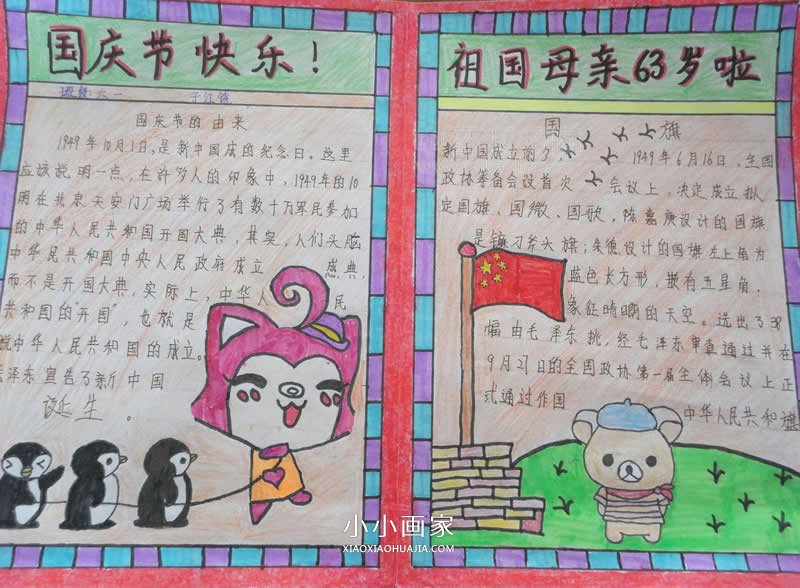 国庆节快乐！
班级：六一
国庆节的由来
1949年10月1日，是新中国成的纪念日。这里
应该说明一点，在许多人的印象中，1949年的10
明在北京天安门广场举行了有数十万军民参加
的中华人民共和国开国大典，其实，人们头脑
中华民共和国中央人民政府成立 盛典，
而不是开国大典，实际上，中华人 民
共和国的“开国”，也就是
说中华人民共和国的成立。
毛泽东宣告了新中国
诞生。
祖国母亲63岁啦
国旗
新中国成立前夕， 1949年6月16日，全国
政协筹备会议首次 会议上，决定成立拟
定国旗、国徽、国歌，陈嘉庚设计的国旗
是镰刀斧头旗；朱德设计的国旗左上角为
蓝色长方形，嵌有五星角，
象征晴朗的天空。选出了38
幅由毛泽东挑，经毛泽东审查通过并在
9月21日的全国政协第一届全体会议上正
式通过作国
中华人民共和旗
小小画家
XIAOXIAOHUAJIA.COM